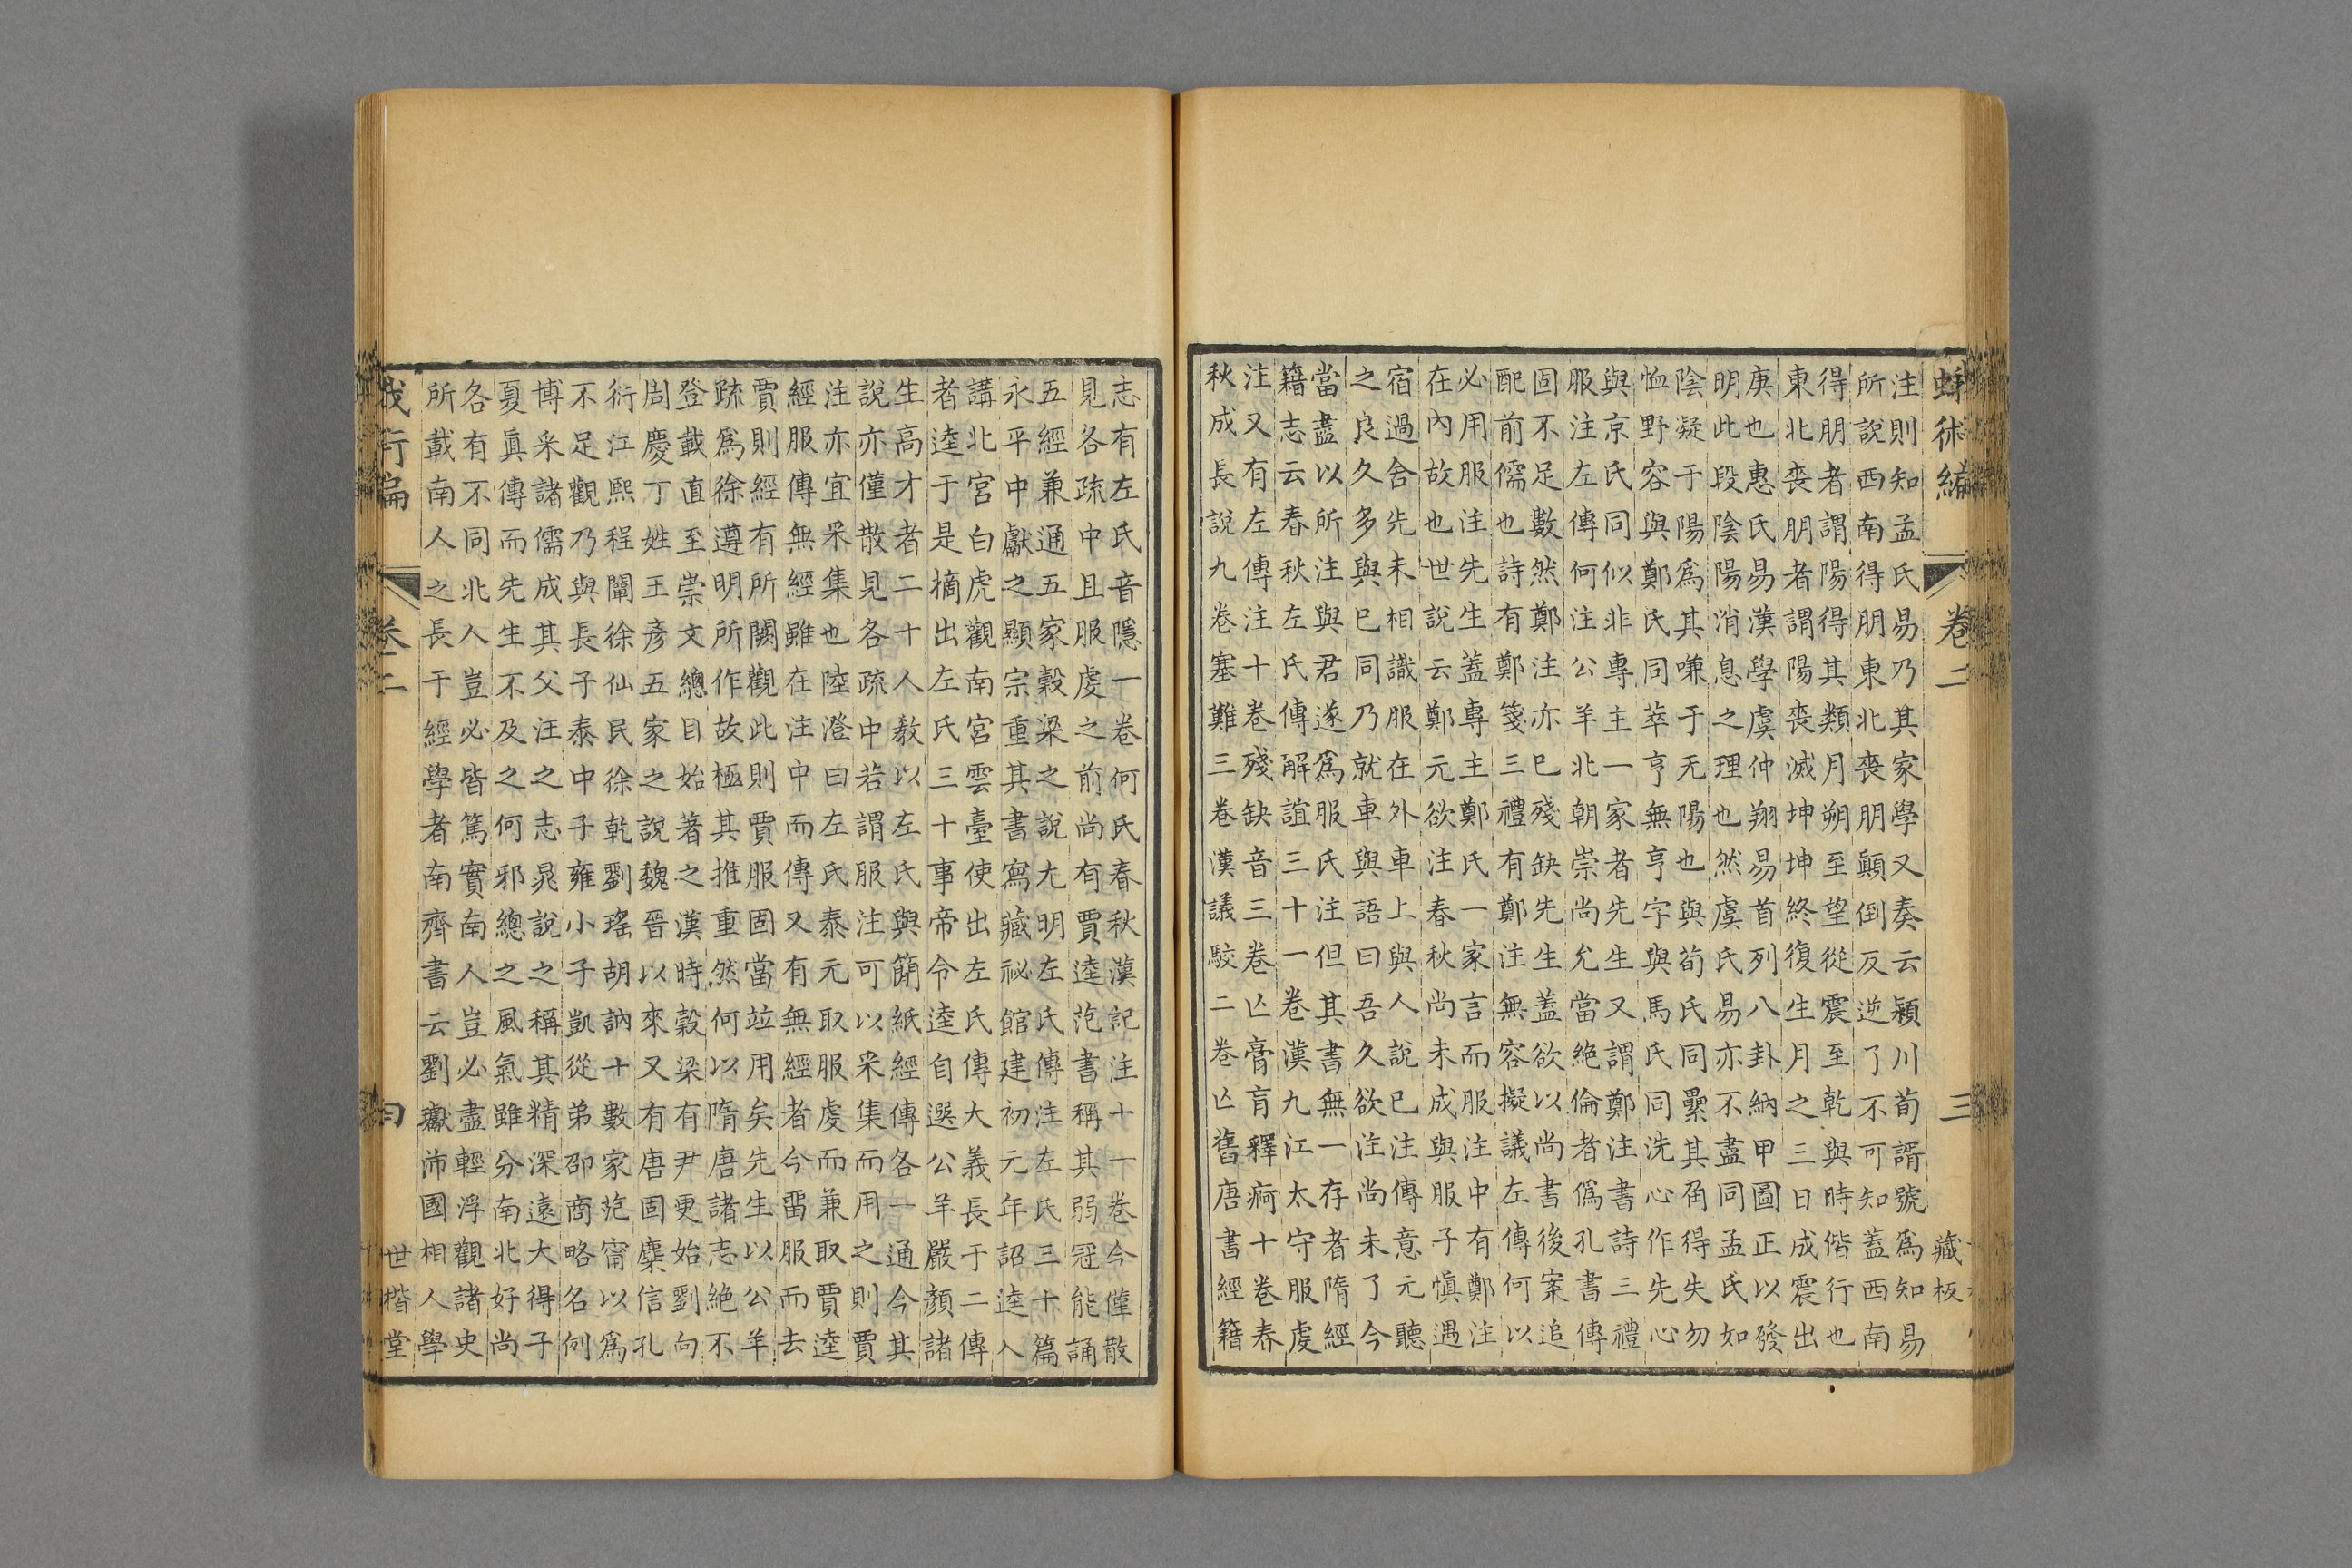 蛾術編 卷二 三 藏板
注則知孟氏易乃其家學又奏云潁川荀諝號爲知易
所說西南得朋東北喪朋顛倒反逆了不可知蓋西南
得朋者謂陽得其類月朔至望從震至乾與時偕行也
東北喪朋者謂陽喪滅坤坤終復生月之三日成震出
庚也惠氏易漢學虞仲翔易首列八卦納甲圖正以發
明此段陰陽消息之理也然虞氏易亦不盡同孟氏如
陰凝于陽爲其嗛于无陽也與荀氏同纍其角得失勿
恤野容與鄭氏同萃亨無亨字與馬氏同洗心作先心
與京氏同似非專主一家者先生又謂鄭注書詩三禮
服注左傳何注公羊北朝崇尚允當絶倫者僞孔書傳
固不足數然鄭注亦已殘缺先生蓋欲以尚書後案追
配前儒也詩有鄭箋三禮有鄭注無容擬議左傳何以
必用服注先生蓋專主鄭氏一家言而服注中有鄭注
在內故也世說云鄭元欲注春秋尚未成與服子愼遇
宿過舍先未相識服在外車上與人說已注傳意元聽
之良久多與已同乃就車與語曰吾久欲注尚未了今
當盡以所注與君遂爲服氏注但其書無一存者隋經
籍志云春秋左氏傳解誼三十一卷漢九江太守服虔
注又有左傳注十卷殘缺音三卷亾膏肓釋痾十卷春
秋成長說九卷塞難三卷漢議駮二卷亾舊唐書經籍
志有左氏音隱一卷何氏春秋漢記注十一卷今僅散
見各疏中且服虔之前尚有賈逵范書稱其弱冠能誦
五經兼通五家穀梁之說尤明左氏傳注左氏三十篇
永平中獻之顯宗重其書寫藏祕館建初元年詔逵入
講北宮白虎觀南宮雲臺使出左氏傳大義長于二傳
者逵于是摘出左氏三十事帝令逵自選公羊嚴顏諸
生高才者二十人敎以左氏與簡紙經傳各一通今其
說亦僅散見各疏中若謂服注可以采集而用之則賈
注亦宜采集也陸澄曰左氏泰元取服虔而兼取賈逵
經服傳無經雖在注中而傳又有無經者今畱服而去
賈則經有所闕觀此則賈服固當竝用矣先生以公羊
疏爲徐遵明所作故極其推重然何以隋唐諸志絶不
登載直至崇文總目始著之漢時穀梁有尹更始劉向
周慶丁姓王彥五家之說魏晉以來又有唐固糜信孔
衍江熙程闡徐仙民徐乾劉瑤胡訥十數家范甯以爲
不足觀乃與長子泰中子雍小子凱從弟邵商略名例
博采諸儒成其父汪之志晁說之稱其精深遠大得子
夏眞傳而先生不及之何邪總之風氣雖分南北好尚
各有不同北人豈必皆篤實南人豈必盡輕浮觀諸史
所載南人之長于經學者南齊書云劉瓛沛國相人學
卷二 世楷堂